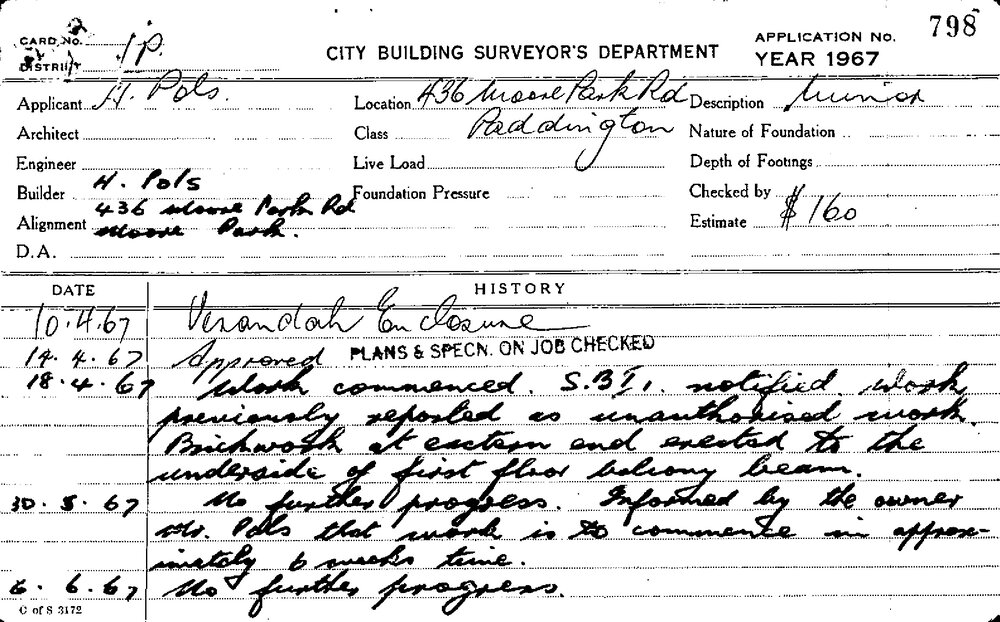 798
CARD No. 1P. CITY BUILDING SURVEYOR'S DEPARTMENT APPLICATION No.
DISTRICT YEAR 1967
Applicant H. Pols. Location 436 Moore Park Rd Description Minor
Architect Class Paddington Nature of Foundation
Engineer Live Load Depth of Footings
Builder H. Pols Foundation Pressure Checked by
436 Moore Park Rd
Alignment Moore Park. Estimate $160
D.A.
DATE HISTORY
10.4.67 Verandah Enclosure
14.4.67 Approved PLANS & SPECN. ON JOB CHECKED
18.4.67 Work commenced. S.B.I. notified work
previously reported as unauthorised work.
Brickwork at eastern end erected to the
underside of first floor balcony beam.
30.5.67 No further progress. Informed by the owner
Mr. Pols that work is to commence in approx-
imately 6 weeks time.
6.6.67 No further progress.
C of S 3172